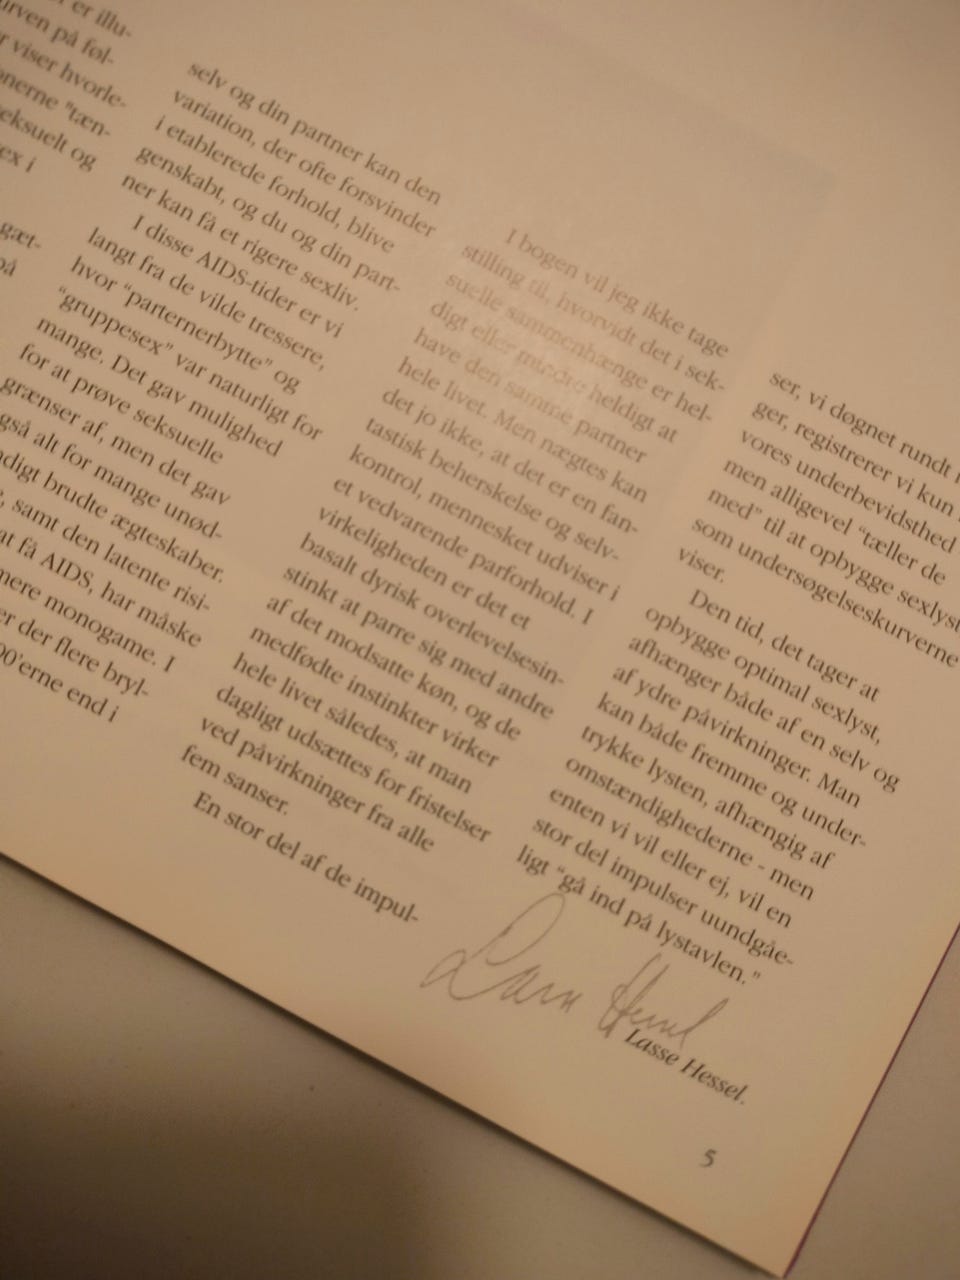 er illu-
urven på føl-
r viser hvorle-
onerne "tæn-
eksuelt og
ex i
gæt-
på
selv og din partner kan den
variation, der ofte forsvinder
i etablerede forhold, blive
genskabt, og du og din part-
ner kan få et rigere sexliv.
I disse AIDS-tider er vi
langt fra de vilde tressere,
hvor "parternerbytte" og
"gruppesex" var naturligt for
mange. Det gav mulighed
for at prøve seksuelle
grænser af, men det gav
også alt for mange unød-
ndigt brudte ægteskaber.
, samt den latente risi-
at få AIDS, har måske
mere monogame. I
er der flere bryl-
00'erne end i
I bogen vil jeg ikke tage
stilling til, hvorvidt det i sek-
suelle sammenhænge er hel-
digt eller mindre heldigt at
have den samme partner
hele livet. Men nægtes kan
det jo ikke, at det er en fan-
tastisk beherskelse og selv-
kontrol, mennesket udviser i
et vedvarende parforhold. I
virkeligheden er det et
basalt dyrisk overlevelsesin-
stinkt at parre sig med andre
af det modsatte køn, og de
medfødte instinkter virker
hele livet således, at man
dagligt udsættes for fristelser
ved påvirkninger fra alle
fem sanser.
En stor del af de impul-
ser, vi døgnet rundt
ger, registrerer vi kun
vores underbevidsthed
men alligevel "tæller de
med" til at opbygge sexlyst
som undersøgelseskurverne
viser.
Den tid, det tager at
opbygge optimal sexlyst,
afhænger både af en selv og
af ydre påvirkninger. Man
kan både fremme og under-
trykke lysten, afhængig af
omstændighederne - men
enten vi vil eller ej, vil en
stor del impulser uundgåe-
ligt "gå ind på lystavlen."
Lasse Hessel
Lasse Hessel.
5